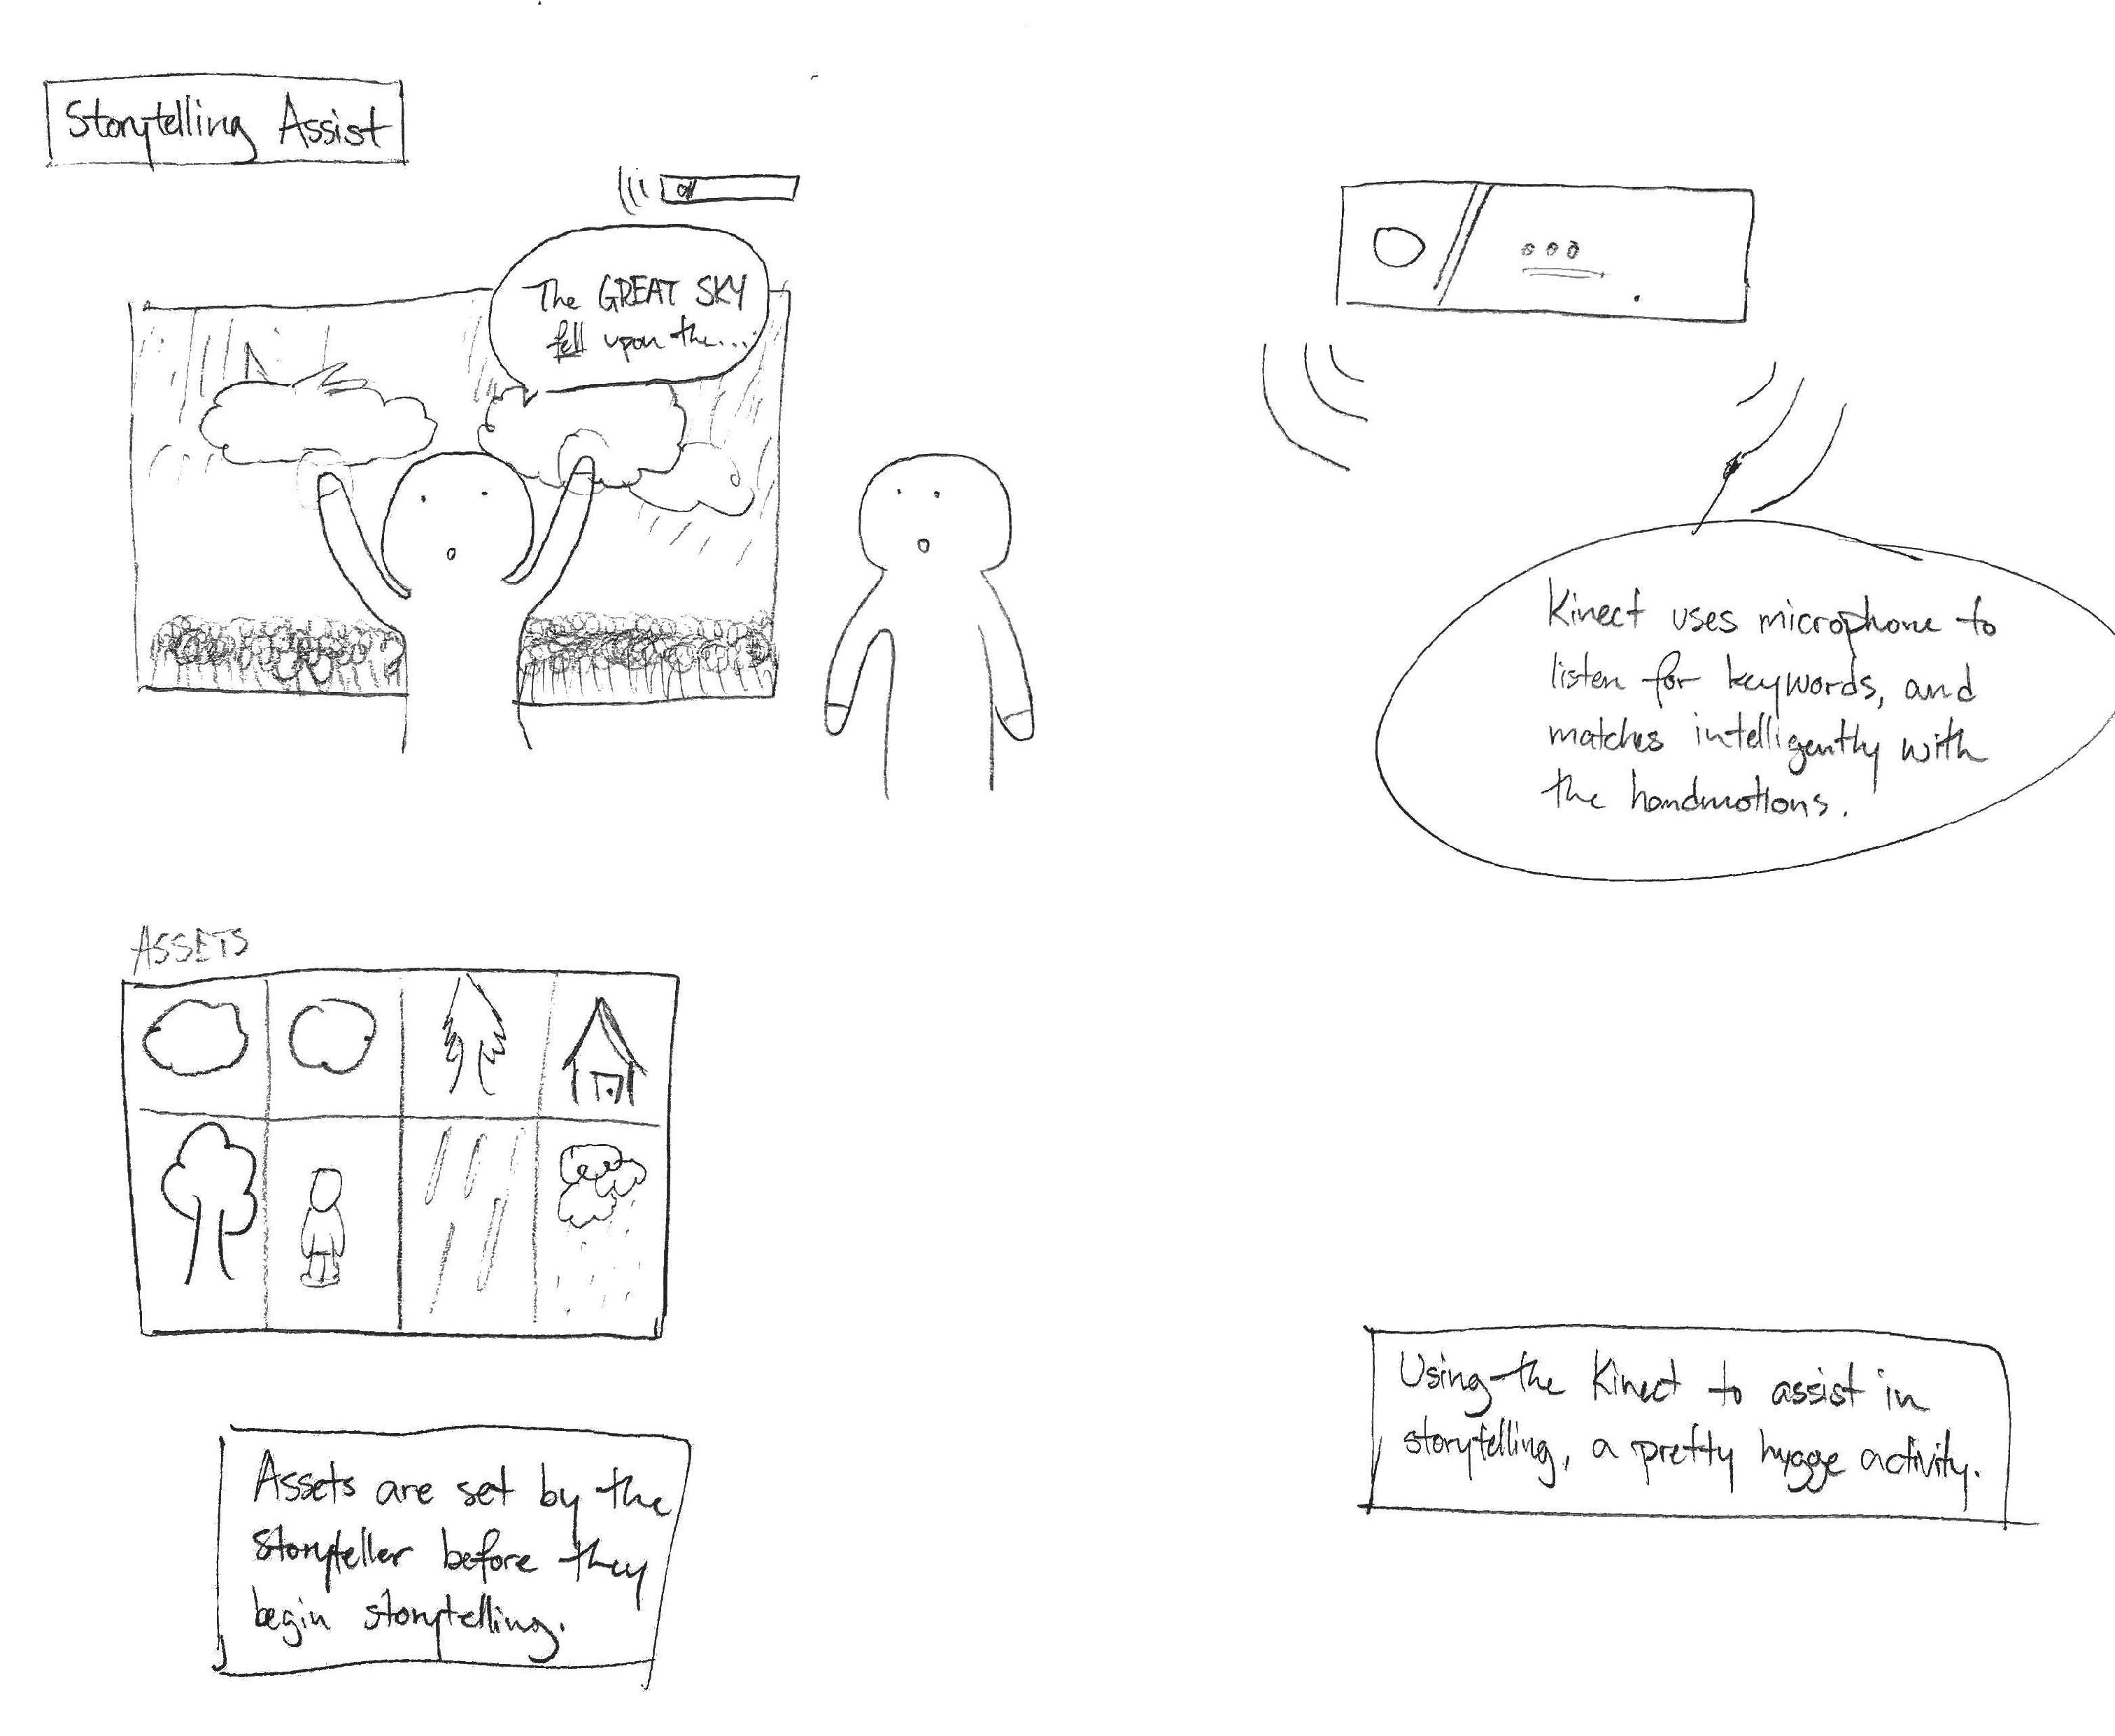 Storytelling Assist
The GREAT SKY
fell upon the...
Kinect uses microphone to
listen for keywords, and
matches intelligently with
the handmotions.
ASSETS
Assets are set by the
storyteller before they
begin storytelling.
Using the Kinect to assist in
storytelling, a pretty hygge activity.